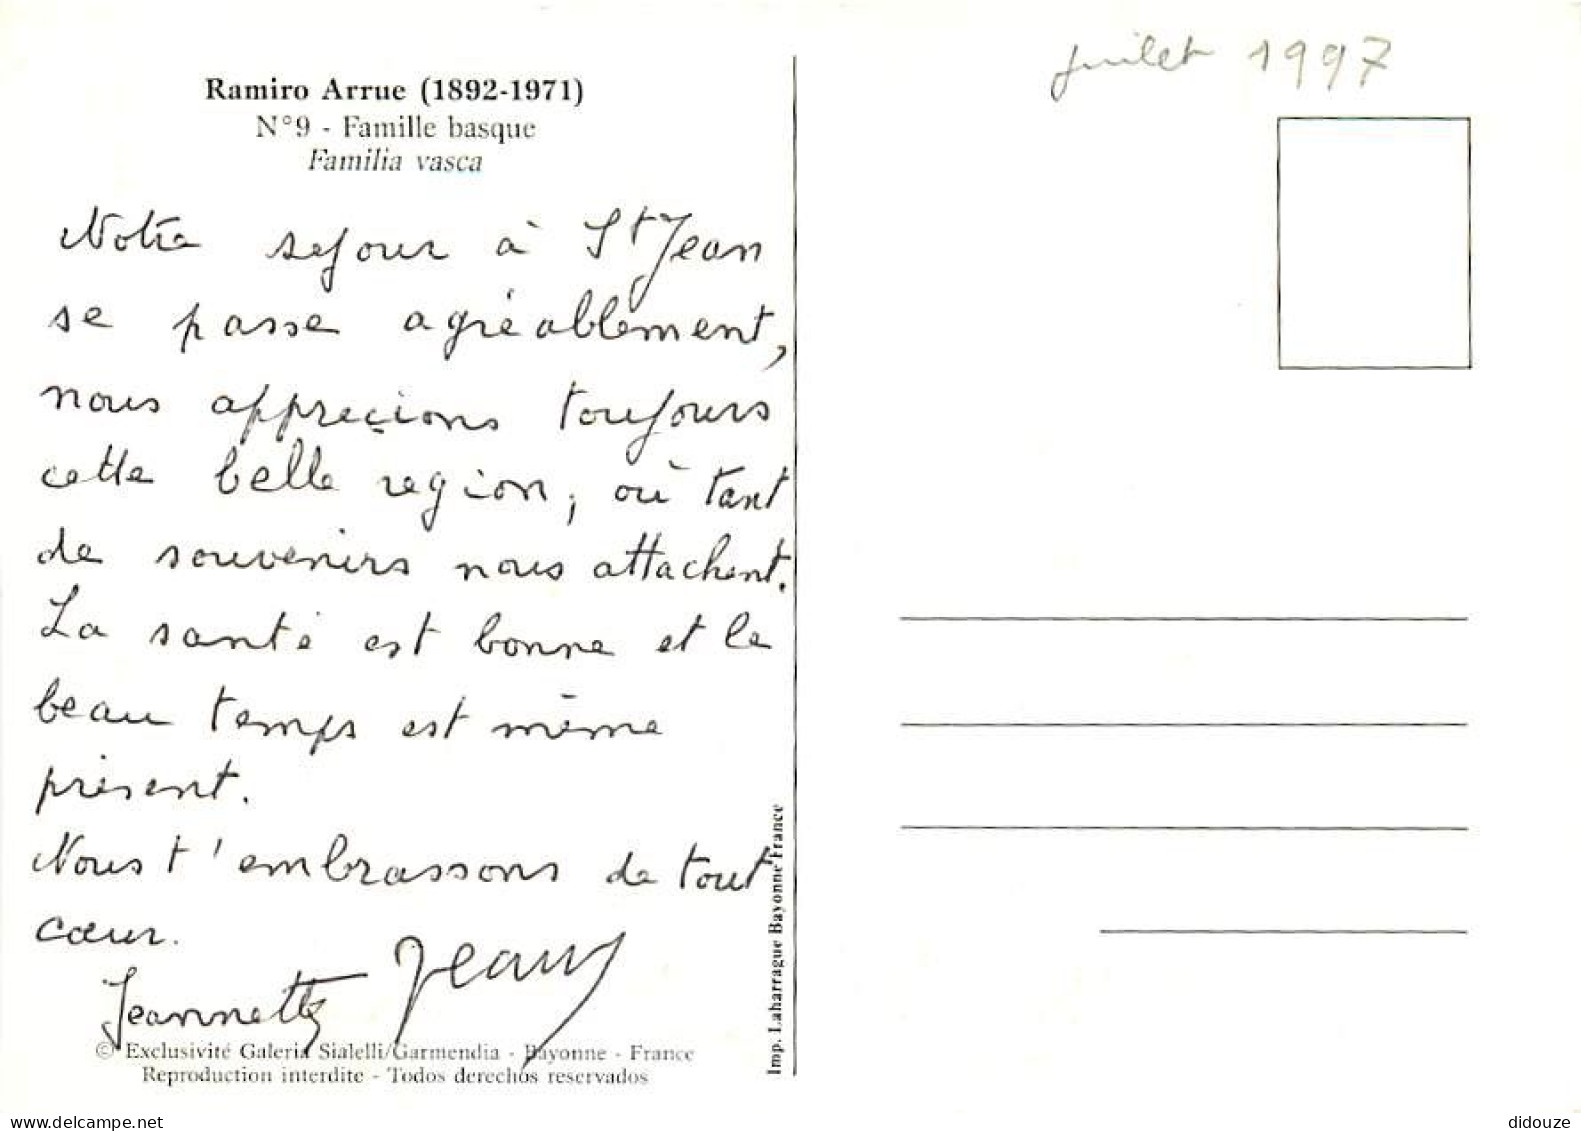 Ramiro Arrue (1892-1971)
N°9 - Famille basque
Familia vasca
Notre sejour à St Jean
se passe agréablement,
nous apprecions toujours
cette belle region, où tant
de souvenirs nous attachent.
La santé est bonne et le
beau temps est même
présent.
Nous t'embrassons de tout
cœur.
Jeannette Jean
© Exclusivité Galeria Sialelli/Garmendia - Bayonne - France
Reproduction interdite - Todos derechos reservados
Imp. Laharrague Bayonne France
juilet 1997
www.delcampe.net
didouze